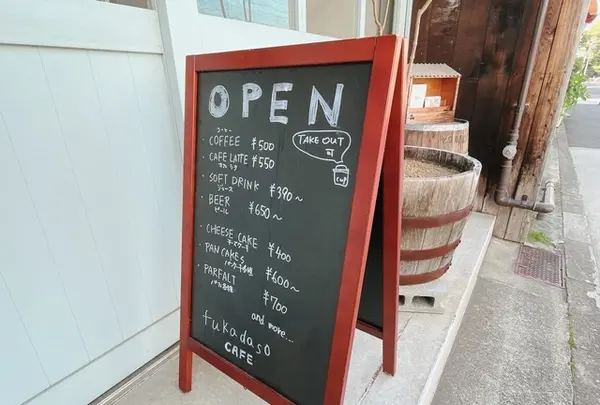 OPEN
コーヒー
COFFEE ¥500
TAKE OUT
可
CUP
CAFE LATTE ¥550
カフェラテ
SOFT DRINK ¥390~
ジュース
BEER ¥650~
ビール
CHEESE CAKE ¥400
チーズケーキ
PAN CAKES ¥600~
PARFAIT ¥700
and more...
fukadaso
CAFE